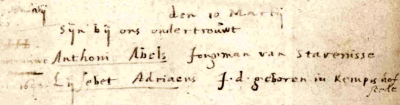 den 10 Martij
Sijn bij ons ondertrouwt
Anthoni Abels Jongman van Stavenisse
Lijsebet Adriaens J. d. geboren in Kempis hof
stede